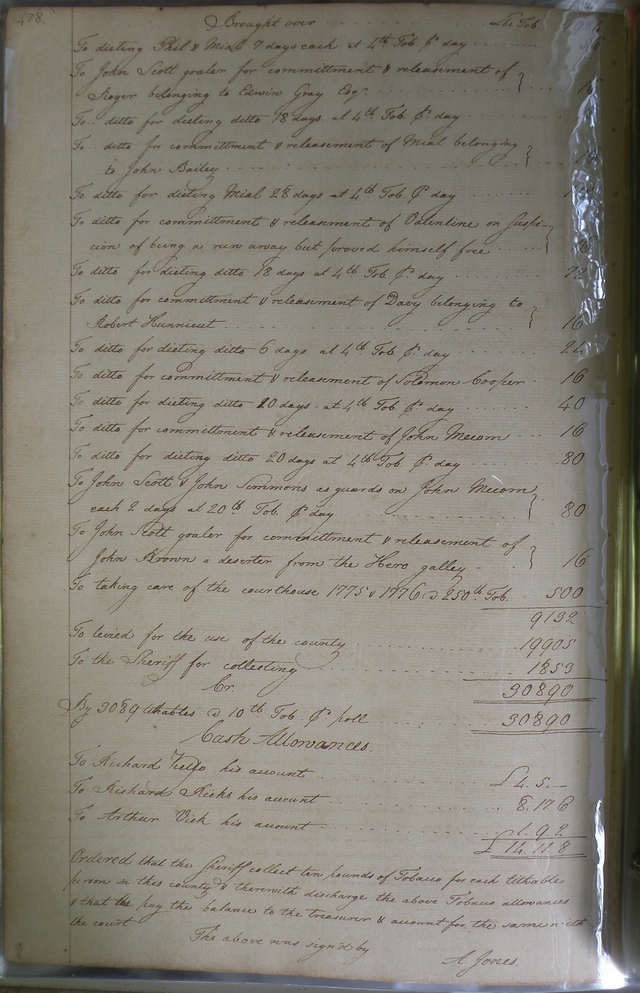 478.
Brought over Lbs Tob.
To dieting Phil & Mial 7 days each at 4lb Tob. ⅌ day 56
To John Scott goaler for committment & releasement of
Roger belonging to Edwin Gray Esqr.
To ditto for dieting ditto 18 days at 4lb Tob. ⅌ day
To ditto for committment & releasement of Mial belonging
to John Bailey
To ditto for dieting Mial 28 days at 4lb Tob. ⅌ day
To ditto for committment & releasement of Valentine on Suspi-
cion of being a run away but proved himself free
To ditto for dieting ditto 18 days at 4lb Tob. ⅌ day 72
To ditto for committment & releasement of Davy belonging to
Robert Hunnicut 16
To ditto for dieting ditto 6 days at 4lb Tob ⅌ day 24
To ditto for committment & releasement of Solomon Cooper 16
To ditto for dieting ditto 10 days at 4lb Tob. ⅌ day 40
To ditto for committment & releasement of John Mecom 16
To ditto for dieting ditto 20 days at 4lb Tob. ⅌ day 80
To John Scott & John Simmons as guards on John Mecom
each 2 days at 20lb Tob. ⅌ day 80
To John Scott goaler for committment & releasement of
John Brown a deserter from the Hero galley 16
To taking care of the courthouse 1775 & 1776 @ 250lb Tob. 500
9132
To levied for the use of the county 19905
To the Sheriff for collecting 1853
Cr. 30890
By 3089 tithables @ 10lb Tob. ⅌ poll 30890
Cash Allowances.
To Richard his account £4.5.—
To Richard Ricks his account 8.17.6
To Arthur Vick his account 1.9.2
£14.11.8
Ordered that the Sheriff collect ten pounds of Tobacco for each tithable
person in this county & therewith discharge the above Tobacco allowances
& that he pay the balance to the treasurer & account for the same with
the court
The above was sign'd by
A. Jones.